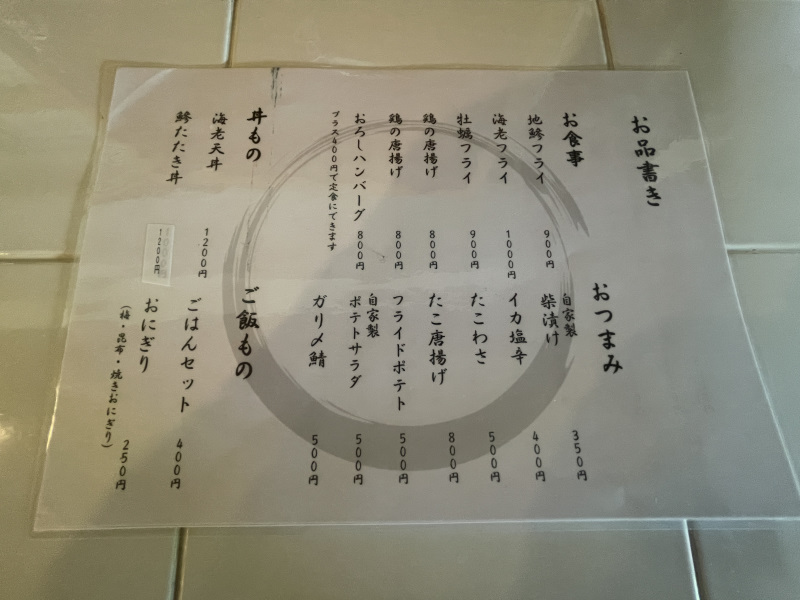 お品書き
お食事
地鯵フライ 900円
海老フライ 1000円
牡蠣フライ 900円
鶏の唐揚げ 800円
鶏の唐揚げ 800円
おろしハンバーグ 800円
プラス400円で定食にできます
丼もの
海老天丼 1200円
鯵たたき丼 1200円
おつまみ
自家製
柴漬け 350円
イカ塩辛 400円
たこわさ 500円
たこ唐揚げ 800円
フライドポテト 500円
自家製
ポテトサラダ 500円
ガリ〆鯖 500円
ご飯もの
ごはんセット 400円
おにぎり 250円
(梅・昆布・焼きおにぎり)